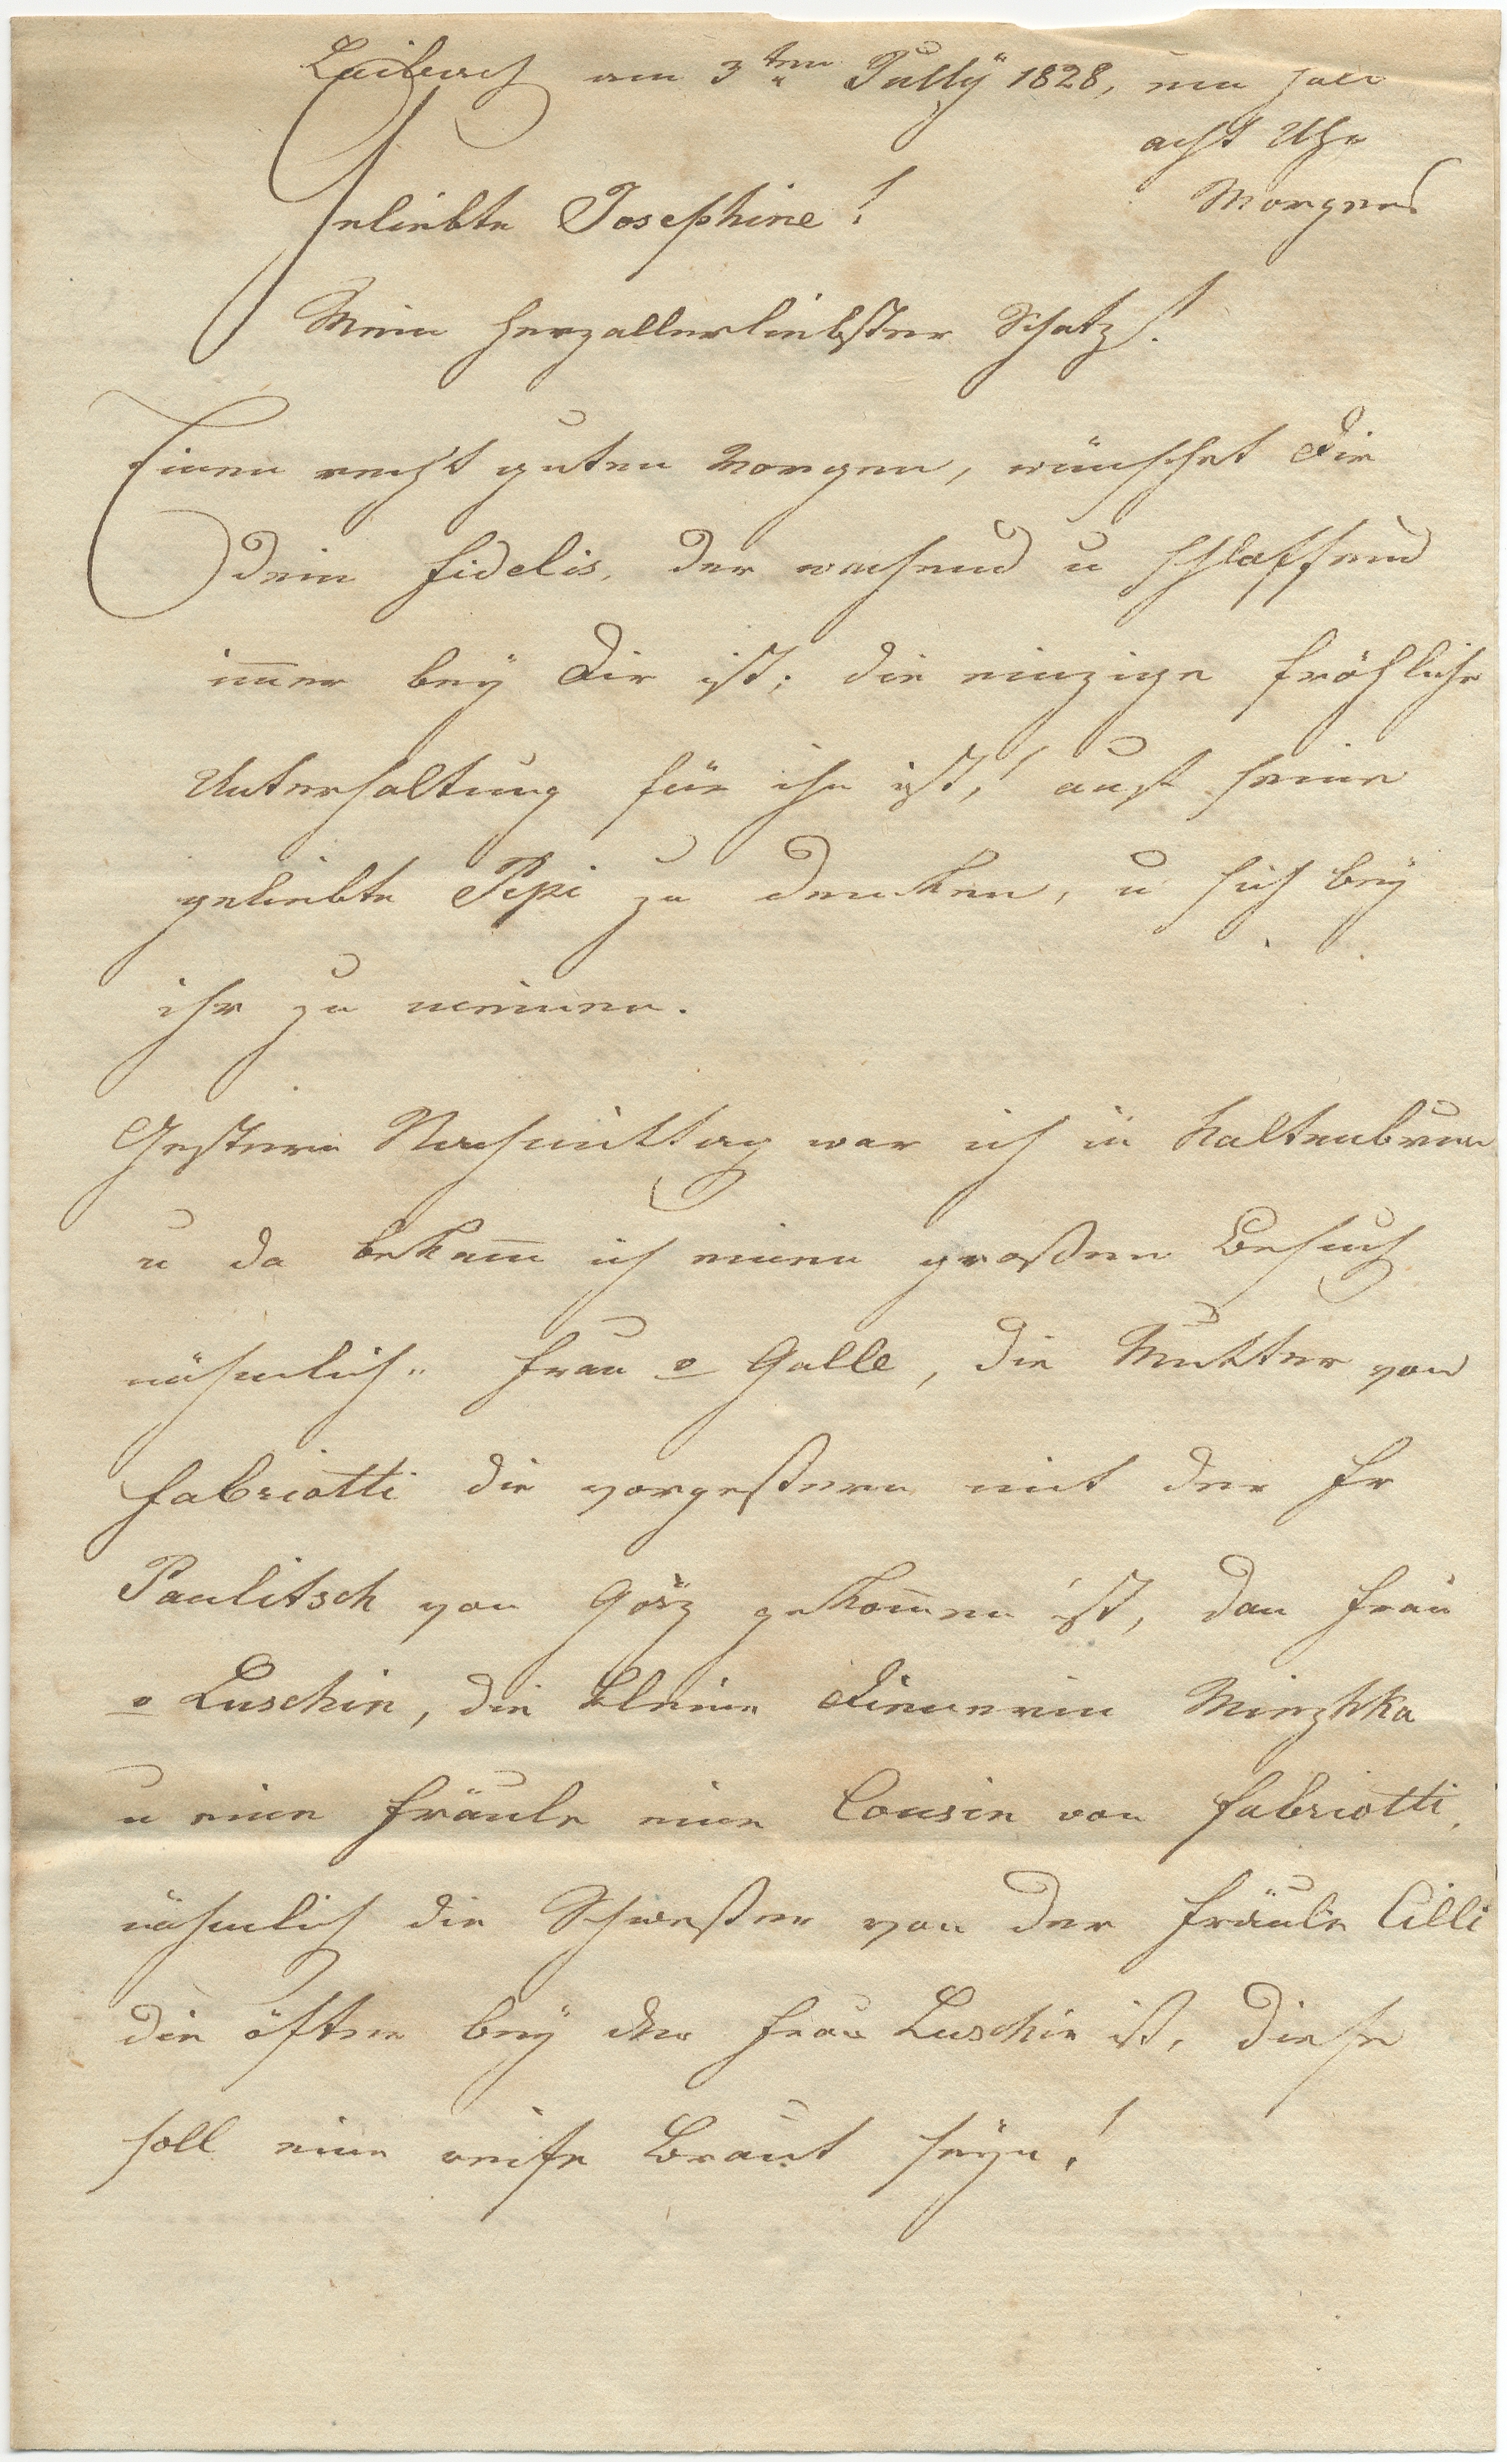 Laibach am 3ten Jully 1828, um halb
acht Uhr
Morgens
Geliebte Josephine!
Mein herzallerliebster Schatz!
Einen recht guten Morgen, wünschet Dir
Dein Fidelis, der wachend u schlaffend
im̅er bey Dir ist; die einzige fröhliche
Unterhaltung für ihn ist, auf seine
geliebte Pepi zu denken, u sich bey
ihr zu meinen.
Gestern Nachmittag war ich in Kaltenbrun
u da bekam̅ ich einen großen Besuch
nähmlich: Frau v Galle, die Mutter von
Fabriotti die vorgestern mit der Fr
Paulitsch von Görz gekom̅en ist, dan Frau
v Luschin, die kleine Dienerin Miezhka
u eine Fräule eine Cousin von Fabriotti,
nähmlich die Schwester von der Fräule Cilli
die öfter bey der Frau Luschin ist, diese
soll eine reife Braut seyn!